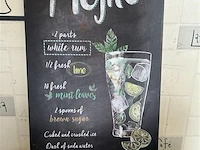 Mojito
2 parts
white rum
1/2 fresh lime
10 fresh
mint leaves
2 spoons of
brown sugar
Cubed and crushed ice
Dash of soda water